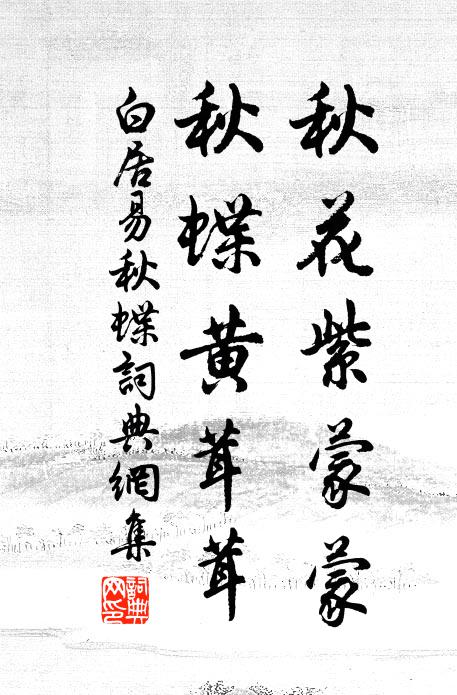 秋花紫蒙蒙
秋蝶黃茸茸
白居易秋蝶詞典網集
詞典网印